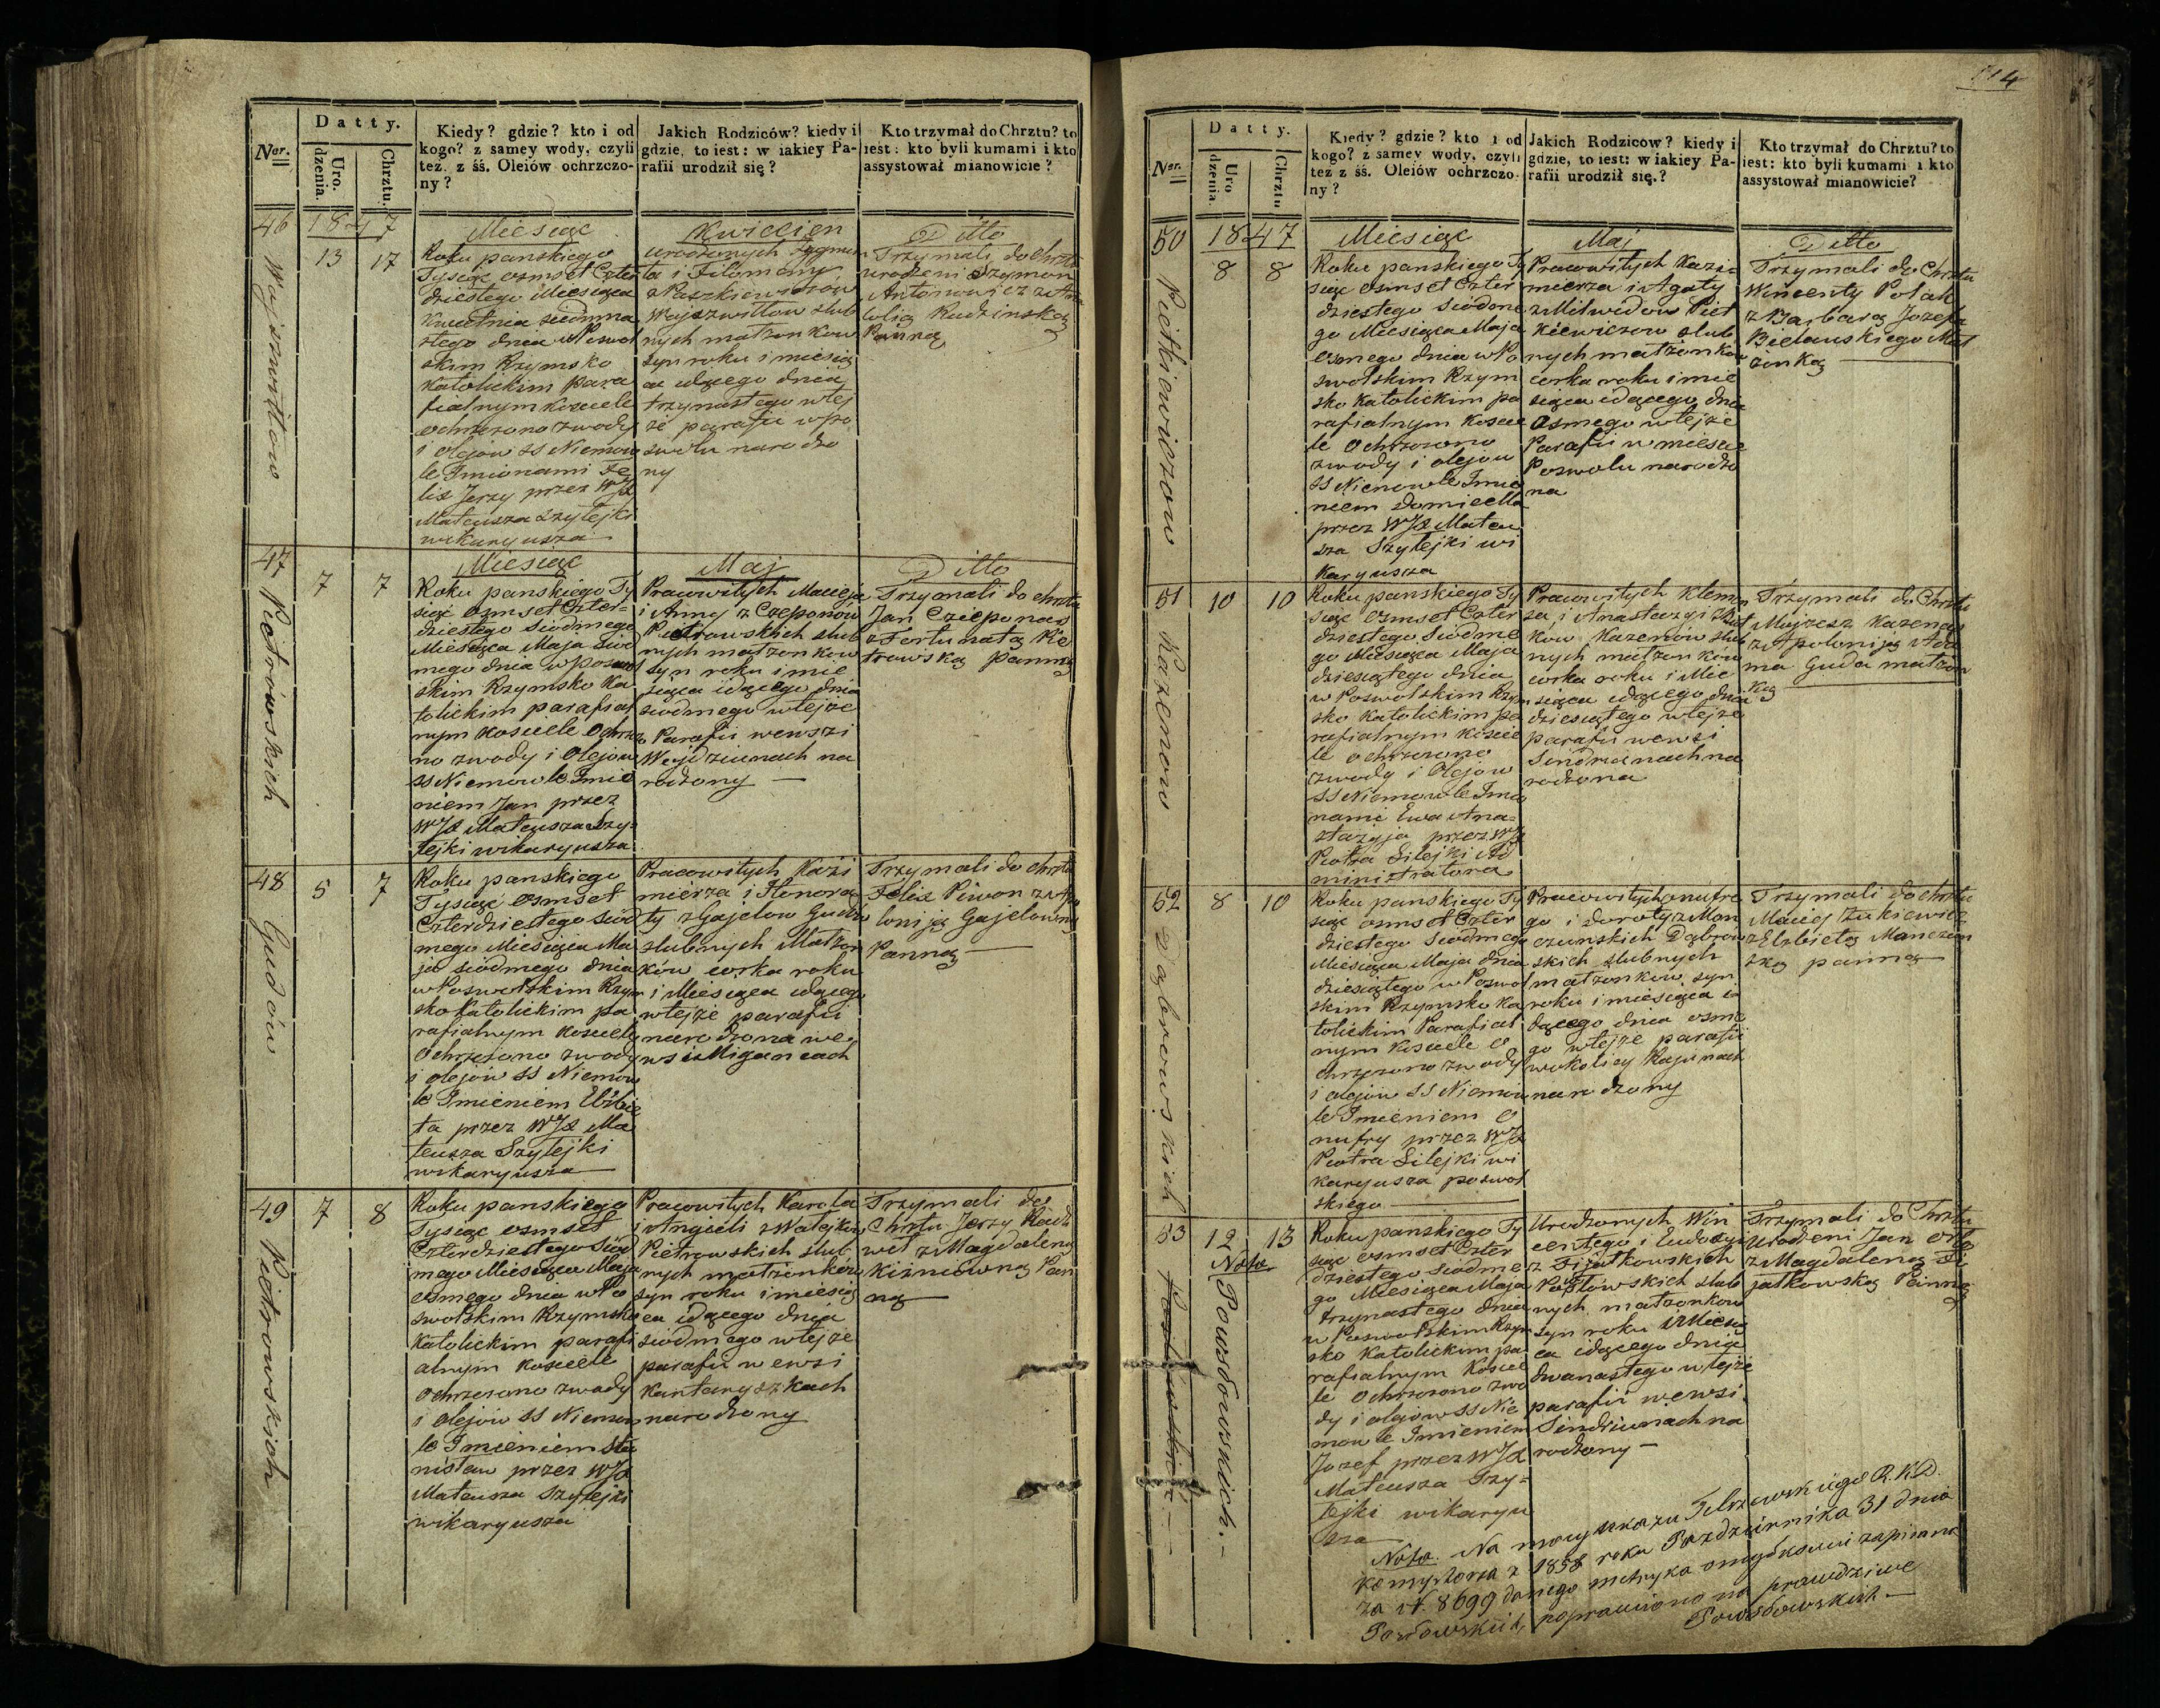 Ner.
Datty.
Uro.
dzenia.
Chrztu.
Kiedy? gdzie? kto i od
kogo? z samey wody, czyli
tez. z śś. Oleiów ochrzczo-
ny?
Jakich Rodziców? kiedy i
gdzie, to iest: w iakiey Pa-
rafii urodził się?
Kto trzymał do Chrztu? to
iest: kto byli kumami i kto
assystował mianowicie?
46
1847
13 17
Wajszwiłłow
Miesiąc
Roku panskiego
Tysiąc osmset Czter
dziestego Miesiąca
Kwietnia siedmna
stego dnia w Poswol
skim Rzymsko
Katolickim para
fialnym kosciele
ochrzczono zwody
i olejow SS Niemow
le Imionami Fe
lix Jerzy przez WJX
Mateusza Szylejki
wikaryusza
Kwiecien
urodzonych Zygmun
ta i Filomeny
z Paszkiewiczow
Wajszwiłłow slub
nych małzonkow
syn roku i miesią
ca idącego dnia
trzynastego wtej
że parafii w Po
swolu narodzo
ny
Ditto
Trzymali do chrztu
urodzeni Szymon
Antonowicz z
Rudzinską
Panną
47
7 7
Piotrowskich
Miesiąc
Roku panskiego Ty
siąc osmset Czter-
dziestego Siodmego
Miesiąca Maja Siod
mego dnia w poswol
skim Rzymsko Ka
tolickim parafial
nym kosciele Ochrzczo
no zwody i Olejow
SS Niemowle Imie
niem Jan przez
WJX Mateusza Szy-
lejki wikaryusza
Maj
Pracowitych Macieja
i Anny z Czeponów
Piotrowskich slub
nych małzonkow
syn roku i mie
siąca idącego dnia
siodmego wtejże
Parafii wewsi
Wejdziunach na
rodzony
Ditto
Trzymali do chrztu
Jan Czieponas
z Fortunatą Pie
trowską panną
48
5 7
Gudów
Roku panskiego
Tysiąc osmset
Czterdziestego Siod
mego Miesiąca Ma
ja siodmego dnia
w Poswolskim Rzym
sko Katolickim pa
rafialnym kosciele
Ochrzczono zwody
i olejów SS Niemow
le Imieniem Elżbie
ta przez WJX Ma
teusza Szylejki
wikaryusza
Pracowitych Kazi
mierza i Honora
ty z Gajelow Gudów
slubnych Małzon
ków corka roku
i Miesiąca idącego
wtejże parafii
narodzona we
wsi Migancach
Trzymali do chrztu
Felix Piwon z Apo
loniją Gajelowną
Panną
49
7 8
Pietrowskich
Roku panskiego
Tysiąc osmset
Czterdziestego Siod
mego Miesiąca Maja
osmego dnia w Po
swolskim Rzymsko
Katolickim parafi
alnym kosciele
Ochrzczono zwody
i olejów SS Niemow
le Imieniem Sta
nisław przez WJX
Mateusza Szylejki
wikaryusza
Pracowitych Karola
i Angieli z Watejkow
Pietrowskich slub
nych małżonkow
syn roku i miesią
ca idącego dnia
siodmego wtejże
parafii w ewsi
Kantaryszkach
narodzony
Trzymali do
Chrztu Jerzy
z Magdaleną
Pan
ną
114
Ner.
Datty.
Uro
dzenia.
Chrztu
Kiedy? gdzie? kto i od
kogo? z samey wody, czyli
tez z śś. Oleiów ochrzczo-
ny?
Jakich Rodziców? kiedy i
gdzie, to iest: w iakiey Pa-
rafii urodził się.?
Kto trzymał do Chrztu? to
iest: kto byli kumami i kto
assystował mianowicie?
50
1847
8 8
Pietkiewiczow
Miesiąc
Roku panskiego Ty
siąc osmset Czter
dziestego Siodme
go Miesiąca Maja
osmego dnia w Po
swolskim Rzym
sko Katolickim pa
rafialnym koscie
le Ochrzczono
zwody i olejow
SS Niemowle Imie
niem Domicella
przez WJX Mateu
sza Szylejki wi
karyusza
Maj
Pracowitych Kazi-
mierza i Agaty
z Milwidow Piet
kiewiczow slub
nych małżonkow
corka roku i mie
siąca idącego dnia
osmego wtejże
Parafii w miescie
Poswolu narodzo
na
Ditto
Trzymali do Chrztu
Wincenty Polak
z Barbarą Jozefa
Bielauskiego Mał
żonką
51
10 10
Kazenow
Roku panskiego Ty
siąc osmset Czter
dziestego Siodme
go Miesiąca Maja
dziesiątego dnia
w Poswolskim Rzym
sko Katolickim pa
rafialnym koscie
le ochrzczono
zwody i Olejow
SS Niemowle Imio
nami Ewa Ana-
stazyja przez WJX
Piotra Silejki Ad
ministratora
Pracowitych Klemen
sa i Anastazyi
Kazenów slub
nych małzonków
corka roku i Mie
siąca idącego dnia
dziesiątego wtejże
parafii wewsi
Sindriunach na
rodzona
Trzymali do Chrztu
Mojżesz Kazenas
z Apoloniją Ada
ma Guda małzon
ką
52
8 10
Dąbrowskich
Roku panskiego Ty
siąc osmset Czter
dziestego Siodmego
Miesiąca Maja dnia
dziesiątego w Poswol
skim Rzymsko Ka
tolickim Parafial
nym kosciele O
chrzczono zwody
i olejów SS Niemow
le Imieniem O
nufry przez WJX
Piotra Silejki wi
karyusza poswol
skiego
Pracowitych Onufre
go i Doroty z Man
czunskich Dąbrow
skich slubnych
małzonkow syn
roku i miesiąca i
dącego dnia osme
go wtejże parafii
wokolicy Rajunach
narodzony
Trzymali do chrztu
Maciej Żukiewicz
z Elzbietą Manczun
ską panną
53
12 13
Nota
Powsłowskich.
Roku panskiego Ty
siąc osmset Czter
dziestego Siodme
go Miesiąca Maja
trzynastego dnia
w Poswolskim Rzym
sko Katolickim pa
rafialnym koscie
le Ochrzczono zwo
dy i olejow SS Nie
mowle Imieniem
Jozef przez WJX
Mateusza Szy-
lejki wikaryu
sza
Urodzonych Win
centego i Ludowiki
z Fijałkowskich
Pasłowskich slub
nych małzonkow
syn roku i Miesią
ca idącego dnia
dwanastego wtejże
parafii wewsi
Sindriunach na
rodzony
Trzymali do Chrztu
Urodzeni Jan
z Magdaleną Fi
jałkowską Panną
Nota. Na mocy ukazu Telszewskiego R.K.D.
Konsystorza z 1858 roku Pazdziernika 31 dnia
za N. 8699 danego metryka omyłkowie zapisana
Pasłowskich, poprawiono na prawdziwe
Powsłowskich